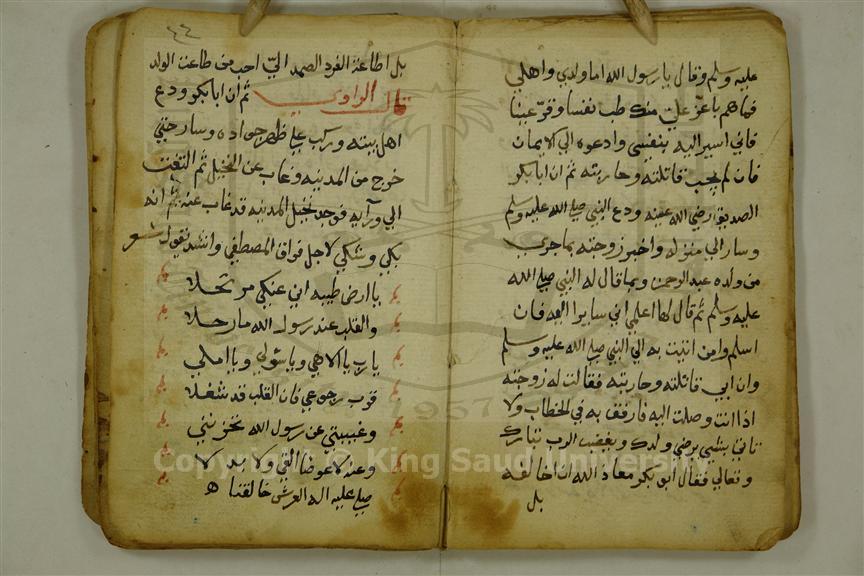 عليه وسلم وقال يا رسول الله اما ولدي واهلي
فما هم باعز علي منك طب نفسا وقر عينا
فاني اسير اليه بنفسي وادعوه الي الايمان
فان لم يجب قاتلته وحاربته ثم ان ابا بكر
الصديق رضي الله عنه ودع النبي صلي الله عليه وسلم
وسار الي منزله واخبر زوجته بما جري
من ولده عبد الرحمن وبما قال له النبي صلي الله
عليه وسلم ثم قال لها اعلمي اني ساير اليه فان
اسلم وامن اتيت به الي النبي صلي الله عليه وسلم
وان ابي قاتلته وحاربته فقالت له زوجته
اذا انت وصلت اليه فارفق به في الخطاب ولا
تاتي بشي يرضي ولدك ويغضب الرب تبارك
وتعالي فقال ابو بكر معاذ الله ان اخالفه
بل
٤٤
بل اطاعة الفرد الصمد الي احب من طاعت الولد
قال الراوي ثم ان ابا بكر ودع
اهل بيته وركب علي ظهر جواده وسار حتي
خرج من المدينه وغاب عن النخيل ثم التفت
الي ورآيه فوجد نخيل المدينه قد غاب عنه ثم انه
بكي وشكي لاجل فراق المصطفي وانشد يقول شعر
يا ارض طيبه اني عنكي مرتحلا
والقلب عند رسول الله ما رحلا
يا رب يا الاهي ويا سولي ويا املي
قرب رجوعي فان القلب قد شغلا
وغيبتي عن رسول الله تحزنني
وعنه لا عوضا القي ولا بدلا
صلي عليه اله العرش خالقنا
Copyright © King Saud University
1957